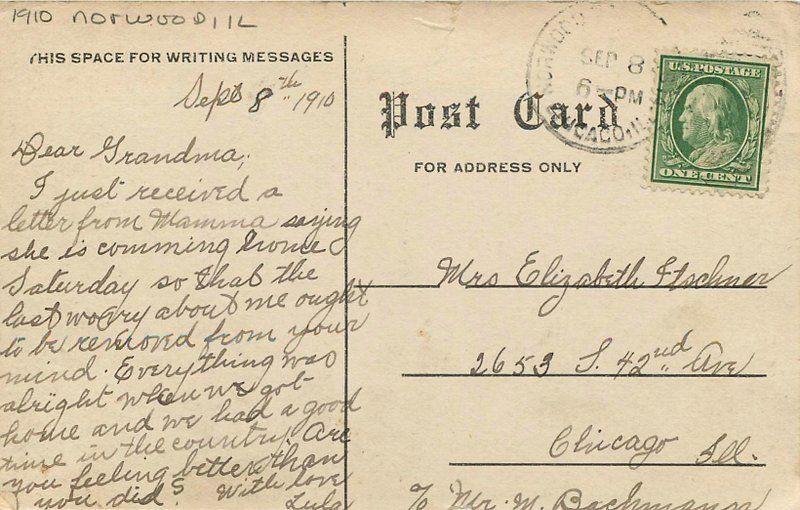 1910 NORWOOD, ILL
THIS SPACE FOR WRITING MESSAGES
Sept 8th 1910
Dear Grandma;
I just received a
letter from Mamma saying
she is comming home
Saturday so that the
last worry about me ought
to be removed from your
mind. Everything was
alright when we got
home and we had a good
time in the country. Are
you feeling better than
you did? With love
Lula
Post Card
FOR ADDRESS ONLY
SEP 8
6 - PM
CHICAGO, ILL
U.S. POSTAGE
ONE CENT
Mrs Elizabeth
2653 S. 42nd Ave
Chicago Ill.
% Mr. M. Bachmann